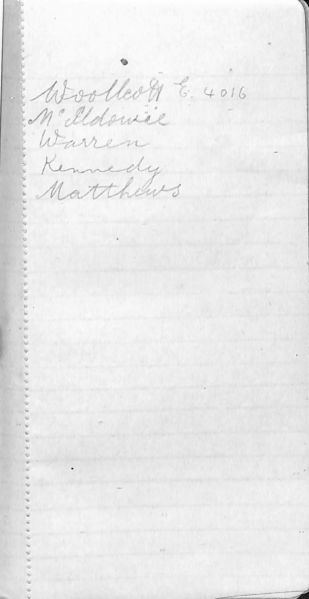 Woollcott E. 4016
McIldowie
Warren
Kennedy
Matthews